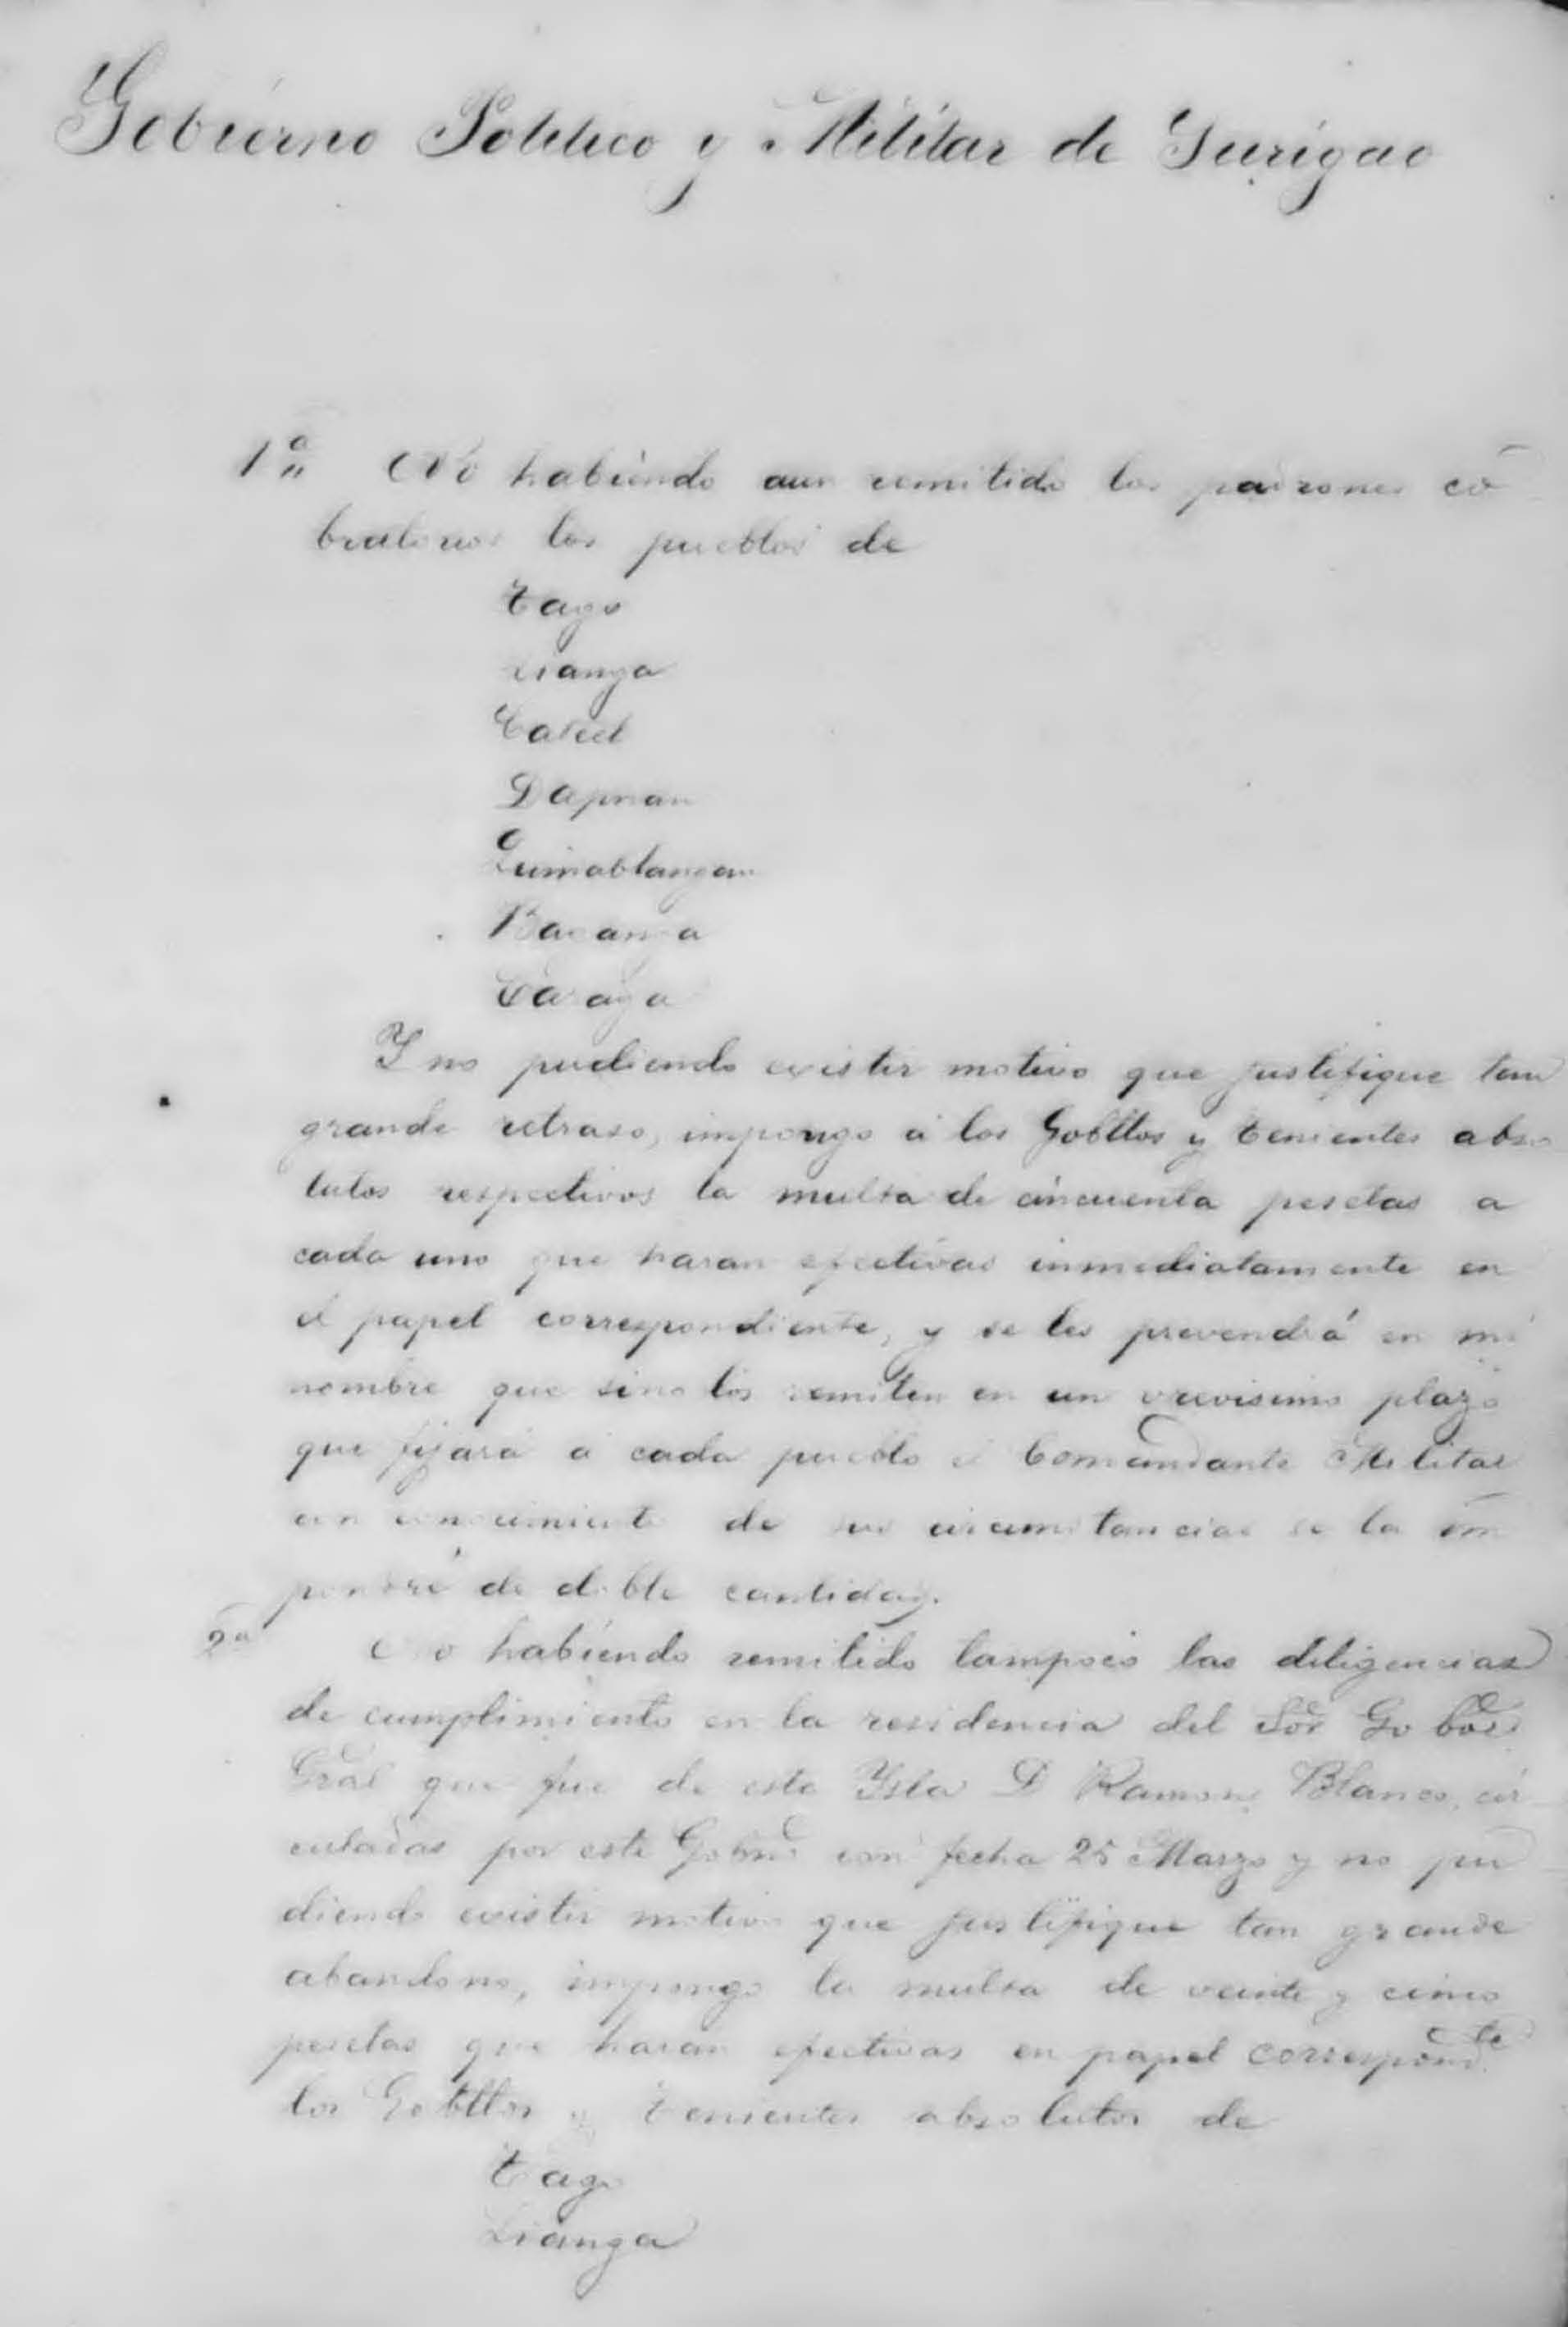 Gobierno Politico y Militar de Surigao
1ª No habiendo aun remitido los padrones co
bratorios los pueblos de
Tago
Lianga
Cateel
Dapnan
Quinablangan
Baganga
Caraga
Y no pudiendo existir motivo que justifique tan
grande retraso, impongo á los Gobllos y tenientes abso
lutos respectivos la multa de cincuenta pesetas a
cada uno que haran efectivas inmediatamente en
el papel correspondiente, y se les prevendrá en mi
nombre que sino los remiten en un brevisimo plazo
que fijará á cada pueblo el Comandante Militar
con conocimiento de sus circunstancias se la im
pondré de doble cantidad.
2ª No habiendo remitido tampoco las diligencias
de cumplimiento en la residencia del Sor Gobor
Gral que fue de esta Ysla D Ramon Blanco, cir
culadas por este Gobno con fecha 25 Marzo y no pu
diendo existir motivo que justifique tan grande
abandono, impongo la multa de veinte y cinco
pesetas que haran efectivas en papel correspondte
los Gobllos y tenientes absolutos de
Tago
Lianga